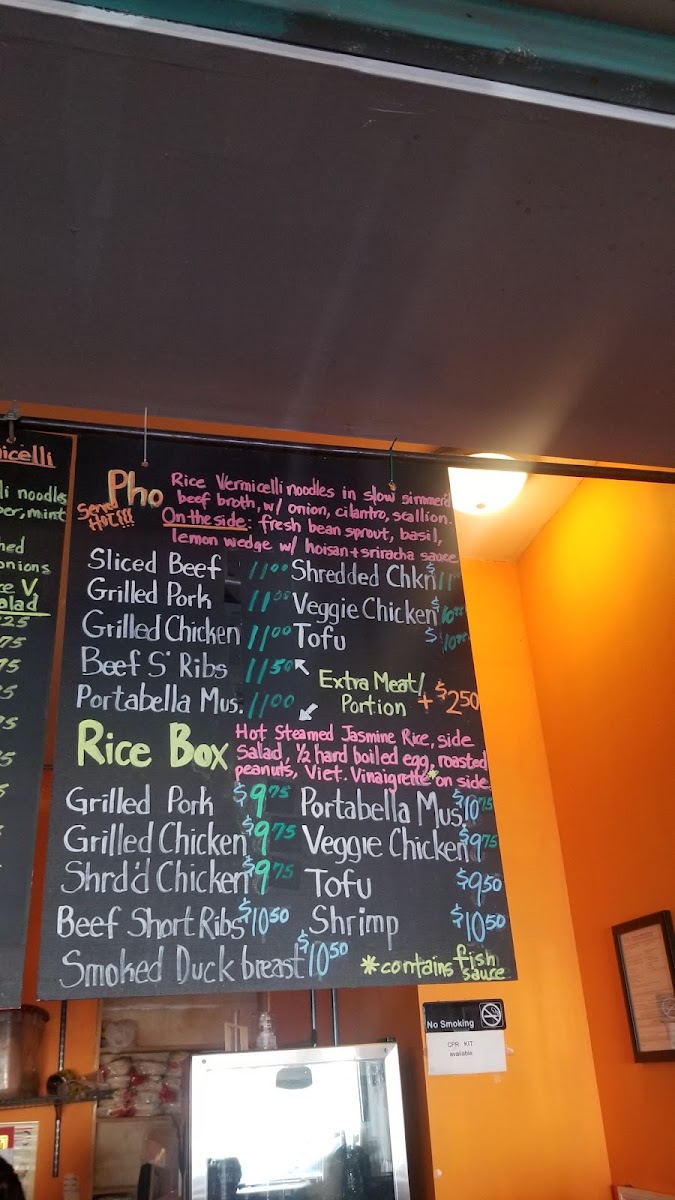 icelli
li noodles
per, mint
hed
onions
ce V
alad
25
75
75
5
75
5
Pho
Served
HOT!!!
Rice Vermicelli noodles in slow simmer'd
beef broth, w/ onion, cilantro, scallion.
On the side: fresh bean sprout, basil,
lemon wedge w/ hoisan + sriracha sauce
Sliced Beef 11.00
Grilled Pork 11.00
Grilled Chicken 11.00
Beef S' Ribs 11.50
Portabella Mus. 11.00
Shredded Chkn $11
Veggie Chicken $10
Tofu $10
Extra Meat/
Portion + $2.50
Rice Box
Hot Steamed Jasmine Rice, side
salad, ½ hard boiled egg, roasted
peanuts, Viet. Vinaigrette* on side
Grilled Pork $9.75
Grilled Chicken $9.75
Shrd'd Chicken $9.75
Beef Short Ribs $10.50
Smoked Duck breast $10.50
Portabella Mus. $10.75
Veggie Chicken $9.75
Tofu $9.50
Shrimp $10.50
*contains fish
sauce
No Smoking
CPR KIT
available